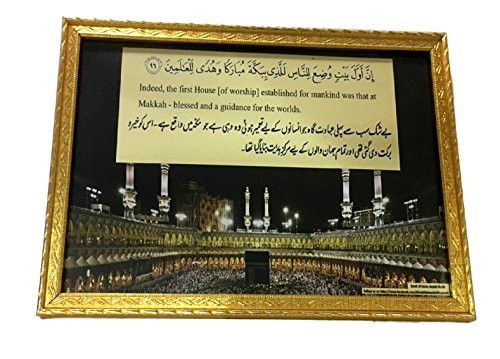 إِنَّ أَوَّلَ بَيْتٍ وُضِعَ لِلنَّاسِ لَلَّذِي بِبَكَّةَ مُبَارَكًا وَهُدًى لِّلْعَالَمِينَ ﴿٩٦﴾
Indeed, the first House [of worship] established for mankind was that at
Makkah - blessed and a guidance for the worlds.
بے شک سب سے پہلی عبادت گاہ جو انسانوں کے لیے تعمیر ہوئی وہ وہی ہے جو مکہ میں واقع ہے ۔ اس کو خیر و
برکت دی گئی تھی اور تمام جہان والوں کے لیے مرکز ہدایت بنایا گیا تھا۔